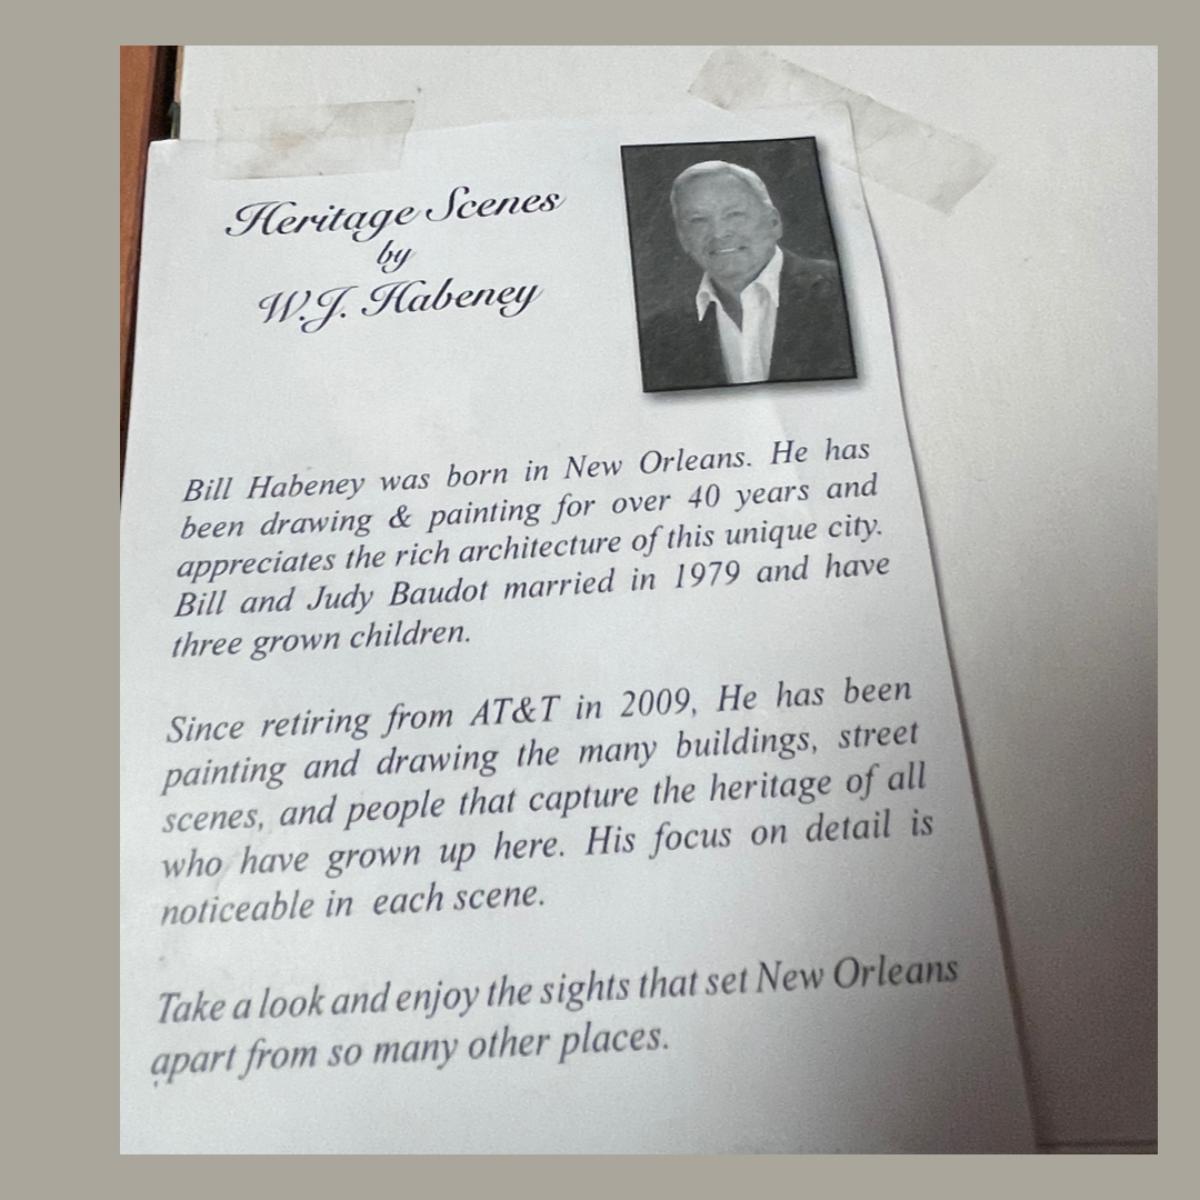 Heritage Scenes
by
W.J. Habeney
Bill Habeney was born in New Orleans. He has
been drawing & painting for over 40 years and
appreciates the rich architecture of this unique city.
Bill and Judy Baudot married in 1979 and have
three grown children.
Since retiring from AT&T in 2009, He has been
painting and drawing the many buildings, street
scenes, and people that capture the heritage of all
who have grown up here. His focus on detail is
noticeable in each scene.
Take a look and enjoy the sights that set New Orleans
apart from so many other places.